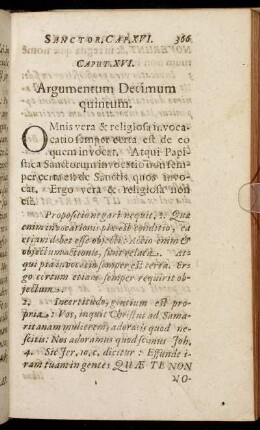 SANCTOR, CAP. XVI. 366
CAPUT. XVI.
Argumentum Decimum
quintum.
OMnis vera & religiosa invoca-
catio semper certa est de eo
quem invocat. Atqui Papi-
stica Sanctorum invocatio non sem-
per certa est de Sanctis quos invo-
cat. Ergo vera & religiosa non
est.
Propositio negari nequit, 1. Quæ
enim invocationis est conditio, ea
etiam debet esse objecti: Actio enim &
objectum actionis, sunt relata. At-
qui pia invocatio semper est certa. Er-
go certum etiam semper requirit ob-
jectum.
2. Incertitudo, gentium est pro-
pria: Vos, inquit Christus ad Sama-
ritanam mulierem, adoratis quod ne-
scitis: Nos adoramus quod scimus Joh,
4. Sic Jer, 10, c. dicitur: Effunde i-
ram tuam in gentes QUÆ TE NON
NO-